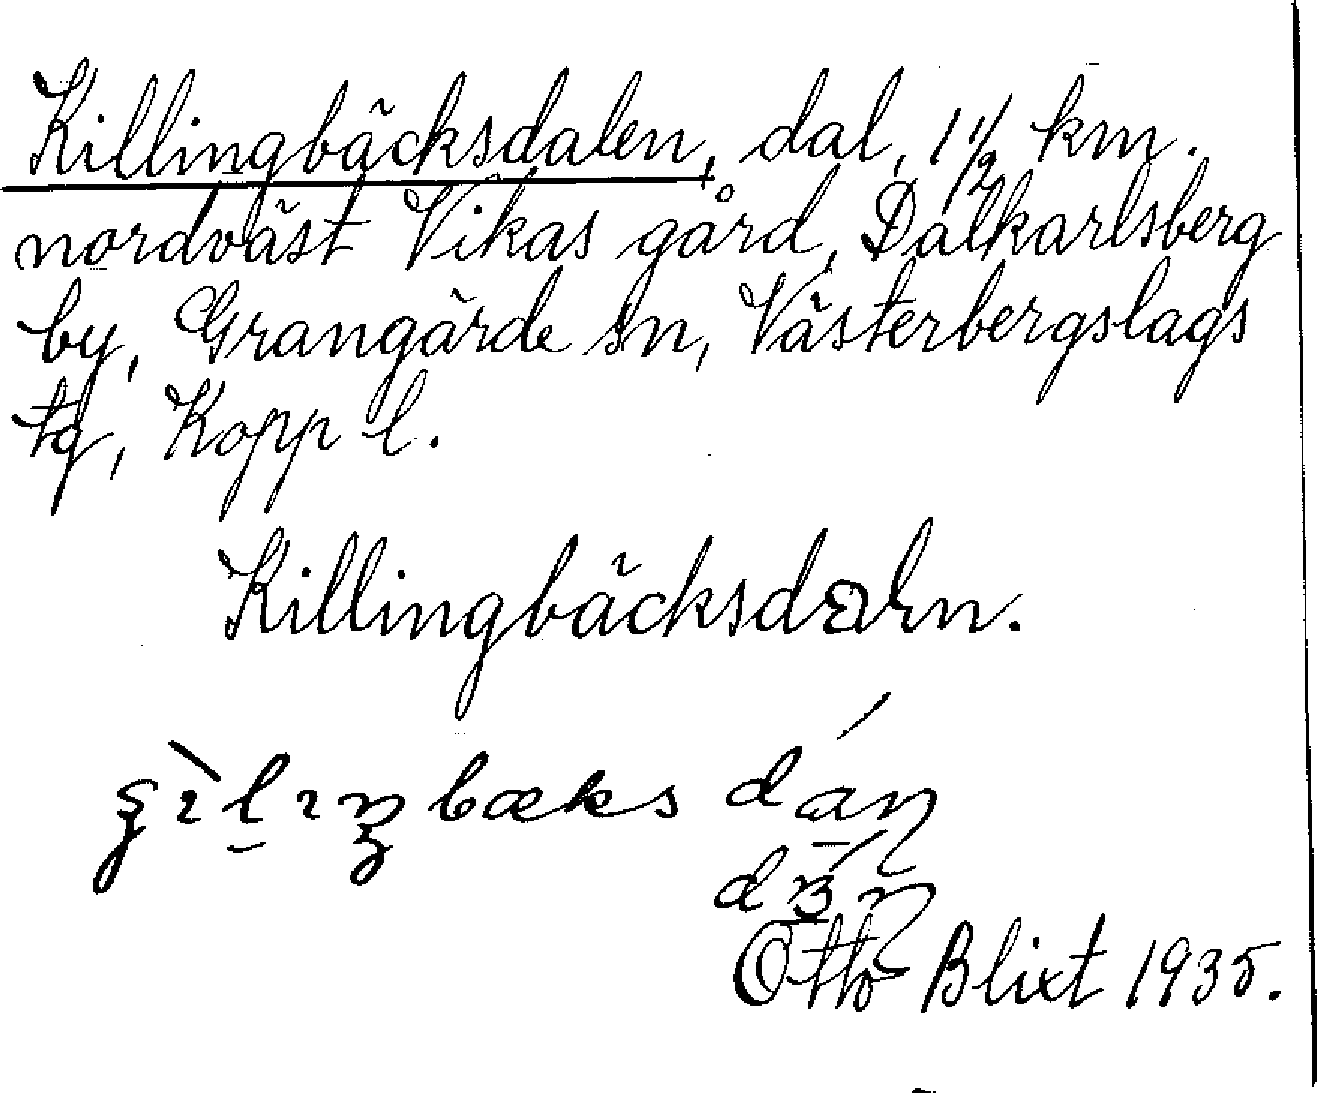 Killingbäcksdalen, dal, 1 1/2 km.
nordväst Vikas gård, Dalkarlsberg
by, Grangärde sn, Västerbergslags
tg, Kopp l.
Killingbäcksdaln.
bæks
Otto Blixt 1935.